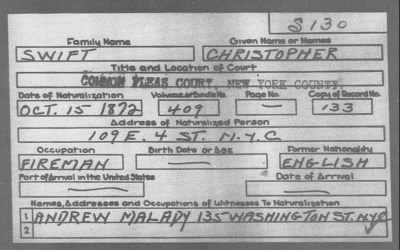 S130
Family Name Given Name or Names
SWIFT CHRISTOPHER
Title and Location of Court
COMMON PLEAS COURT, NEW YORK COUNTY
Date of Naturalization Volume or Bundle No. Page No. Copy of Record No.
OCT. 15 - 1872 409 — 133
Address of Naturalized Person
109 E. 4 ST. N.Y.C
Occupation Birth Date or Age Former Nationality
FIREMAN — ENGLISH
Port of Arrival in the United States Date of Arrival
— —
Names, Addresses and Occupations of Witnesses To Naturalization
1 ANDREW MALADY 135 WASHINGTON ST. NYC
2